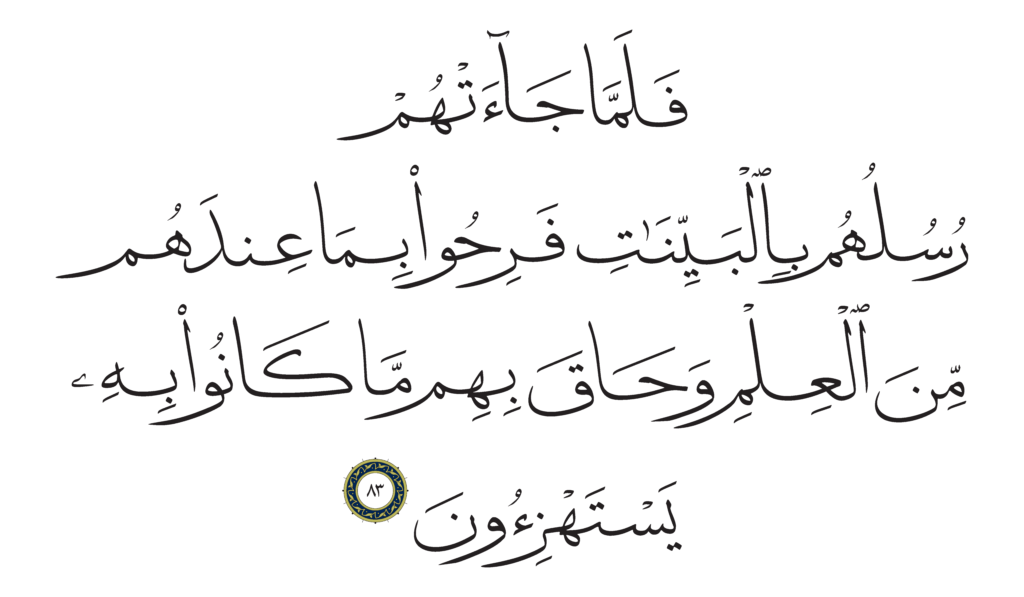 فَلَمَّا جَآءَتْهُمْ
رُسُلُهُم بِٱلْبَيِّنَٰتِ فَرِحُوا۟ بِمَا عِندَهُم
مِّنَ ٱلْعِلْمِ وَحَاقَ بِهِم مَّا كَانُوا۟ بِهِۦ
يَسْتَهْزِءُونَ ٨٣